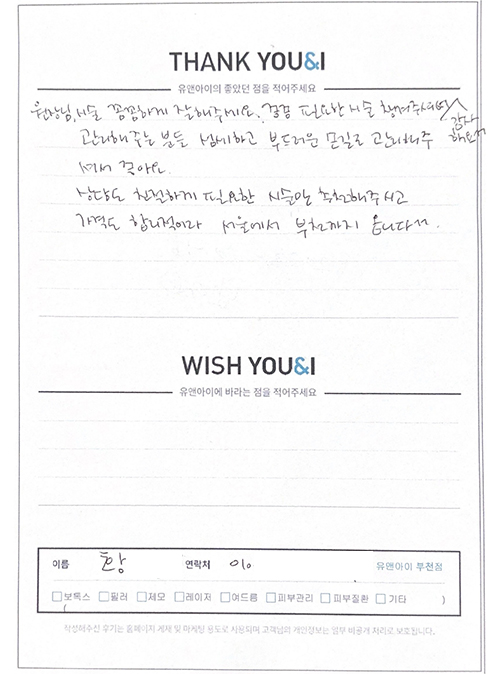 THANK YOU&I
유앤아이의 좋았던 점을 적어주세요
원장님, 시술 꼼꼼하게 잘해주세요. 필요한 시술 챙겨주셔서 감사해요
관리해주는 분들 섬세하고 부드러운 손길로 관리해주
셔서 좋아요.
상담도 친절하게 필요한 시술만 추천해주시고
가격도 합리적이라 서울에서 부천까지 옵니다.
WISH YOU&I
유앤아이에 바라는 점을 적어주세요
이름 황 연락처 010 유앤아이 부천점
보톡스 필러 제모 레이저 여드름 피부관리 피부질환 기타 ( )
작성해주신 후기는 홈페이지 게재 및 마케팅 용도로 사용되며 고객님의 개인정보는 일부 비공개 처리로 보호됩니다.